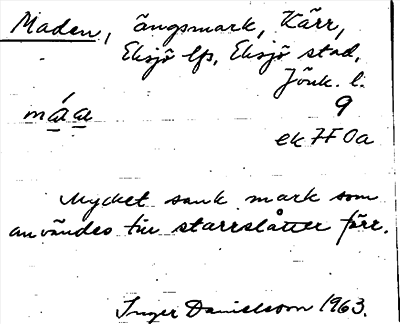 Maden, ängsmark, Kärr,
Eksjö lfs, Eksjö stad,
Jönk. l.
9
ek 7F0a
Mycket sank mark som
användes till starrslåtter förr.
Inger Danielsson 1963.